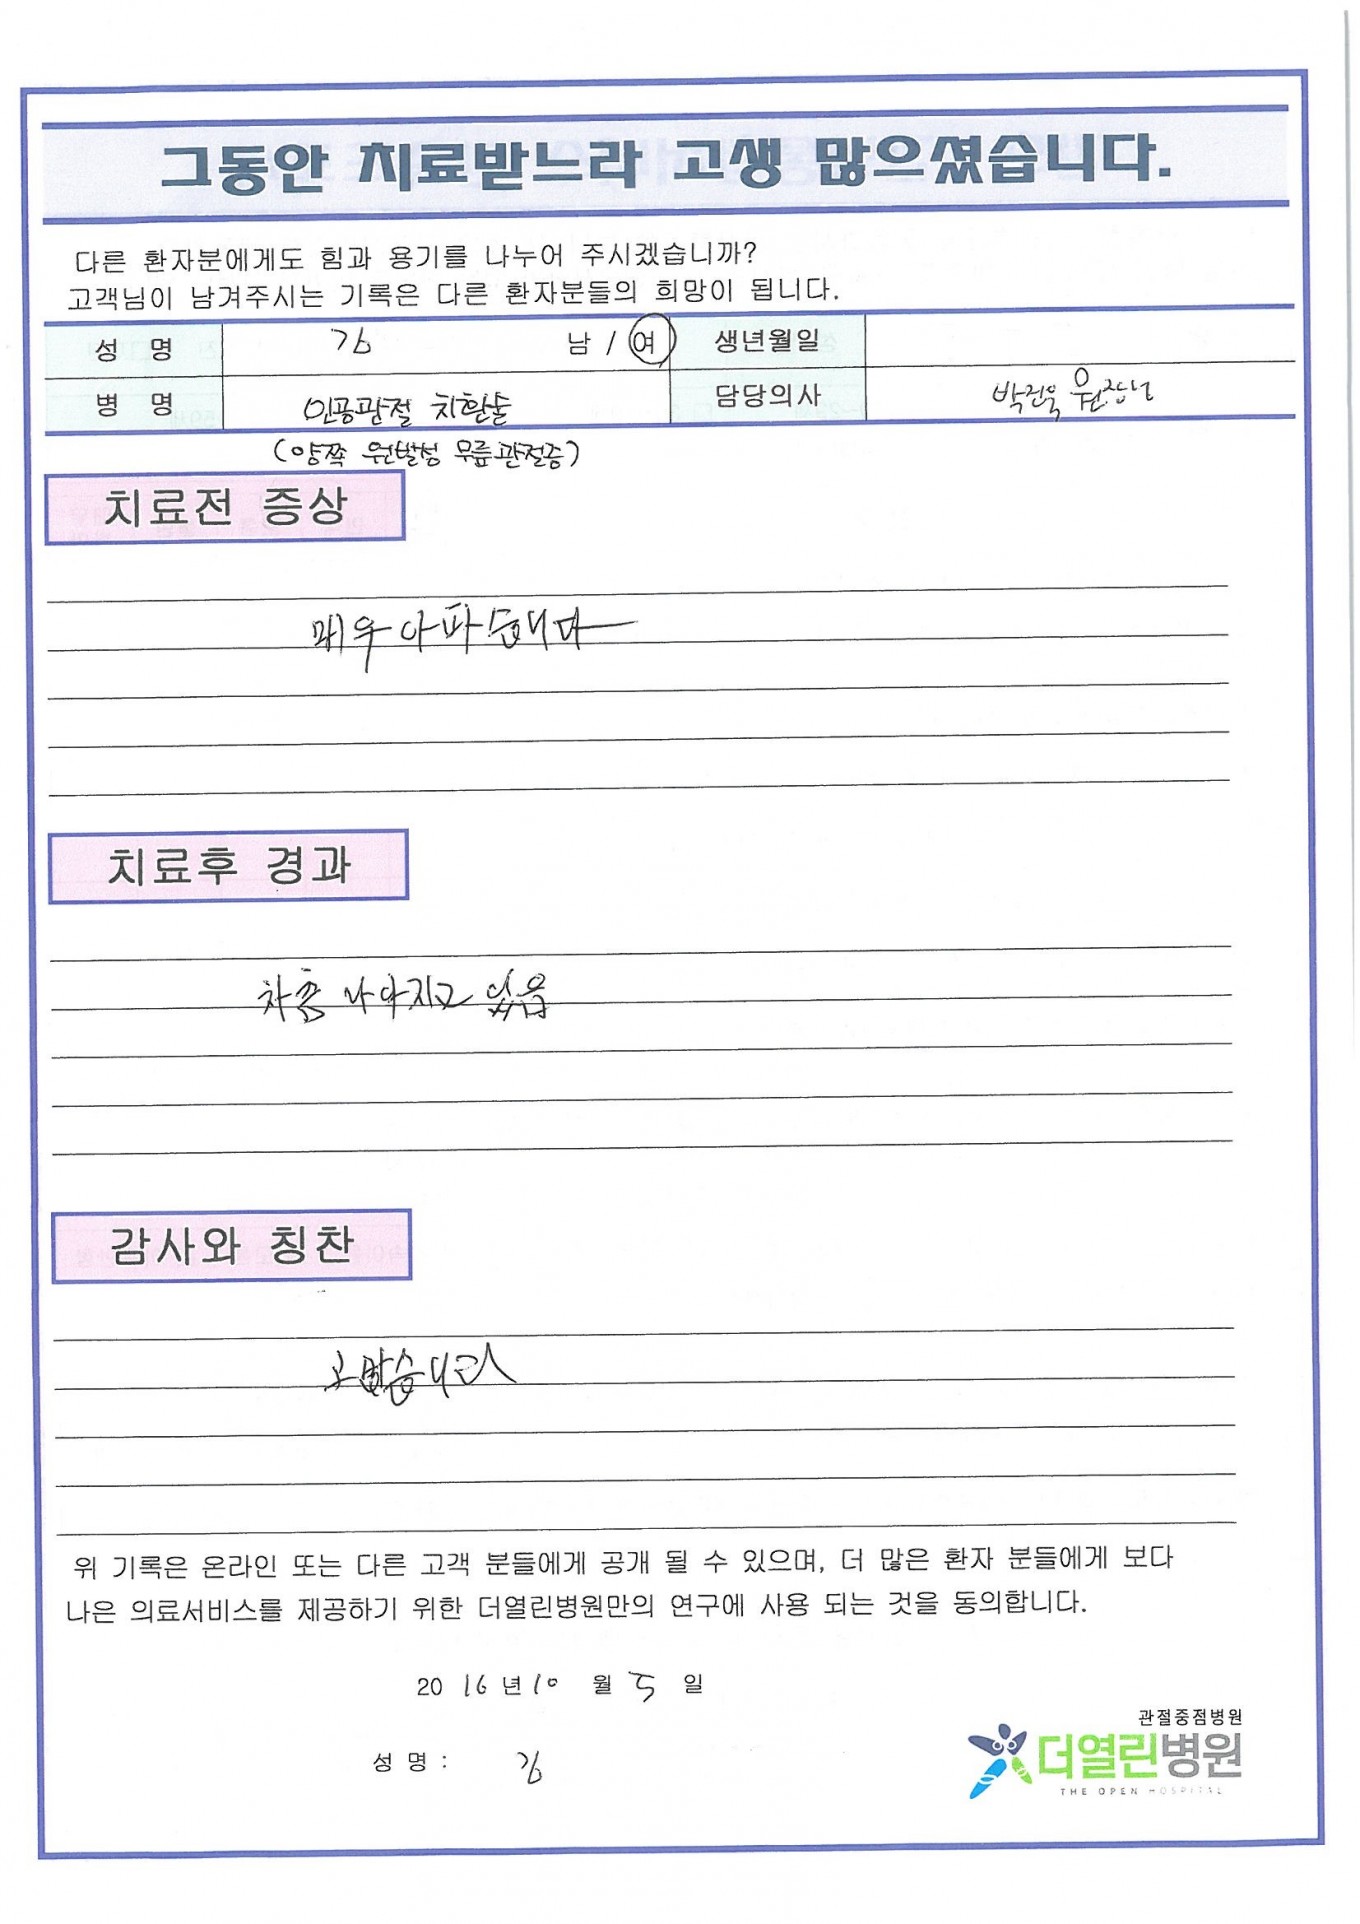 그동안 치료받느라 고생 많으셨습니다.
다른 환자분에게도 힘과 용기를 나누어 주시겠습니까?
고객님이 남겨주시는 기록은 다른 환자분들의 희망이 됩니다.
성 명 김 남 / 여 생년월일
병 명 인공관절 치환술 담당의사 박진욱 원장님
(양쪽 원발성 무릎관절증)
치료전 증상
매우 아파습니다
치료후 경과
차츰 나아지고 있음
감사와 칭찬
고맙습니다
위 기록은 온라인 또는 다른 고객 분들에게 공개 될 수 있으며, 더 많은 환자 분들에게 보다
나은 의료서비스를 제공하기 위한 더열린병원만의 연구에 사용 되는 것을 동의합니다.
20 16 년 10 월 5 일
성 명 : 김
관절중점병원
더열린병원
THE OPEN HOSPITAL